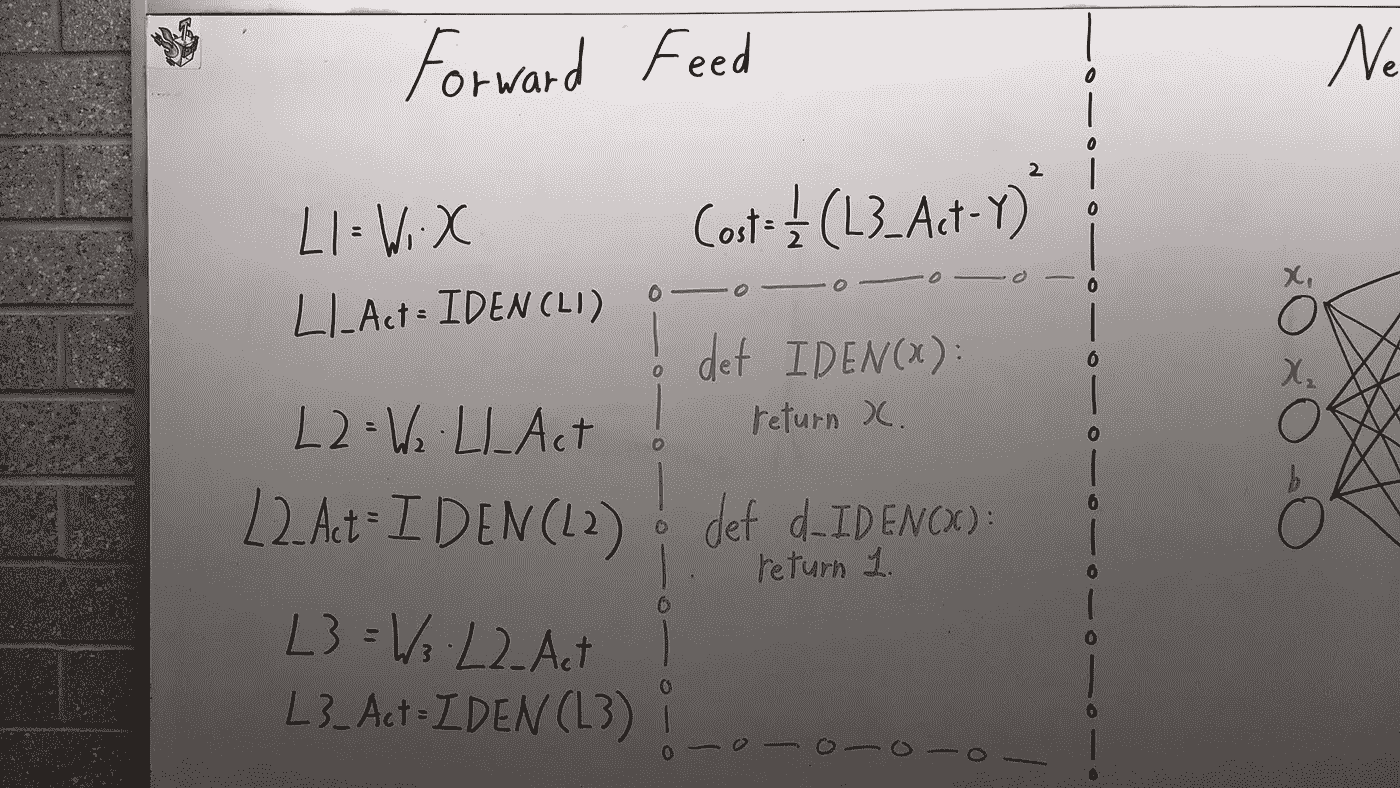 Forward Feed
L1 = W₁·X
L1_Act = IDEN(L1)
L2 = W₂·L1_Act
L2_Act = IDEN(L2)
L3 = W₃·L2_Act
L3_Act = IDEN(L3)
Cost = ½(L3_Act - Y)²
def IDEN(x):
return X.
def d_IDEN(x):
return 1.
Ne
x₁
x₂
b